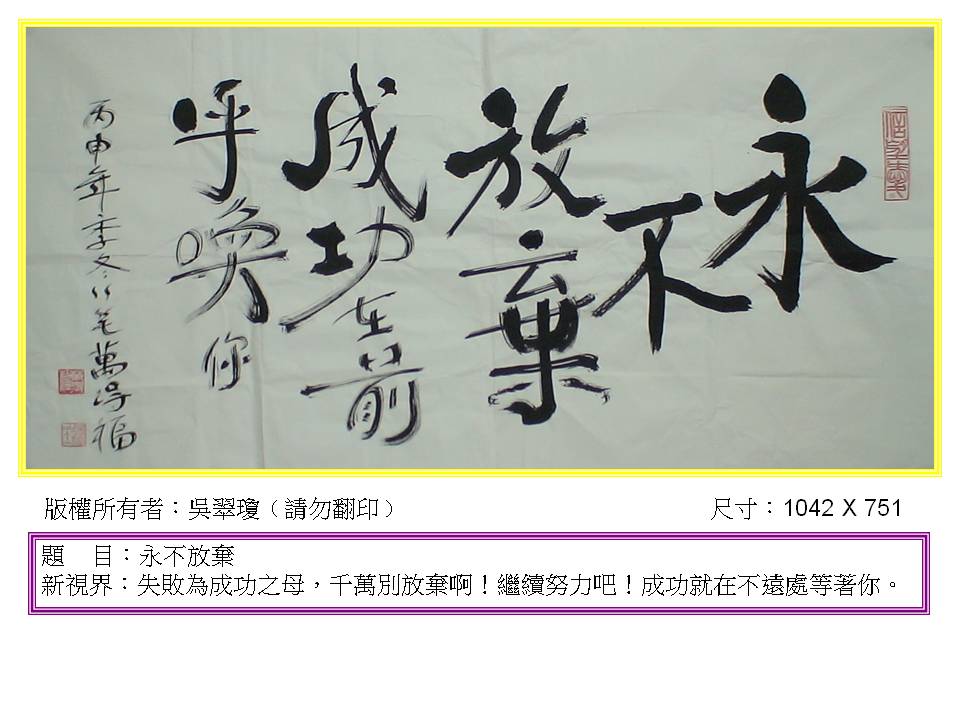 永不
放棄
成功在前
呼喚你
丙申年季冬行笔萬得福
版權所有者：吳翠瓊（請勿翻印）
尺寸：1042 X 751
題　目：永不放棄
新視界：失敗為成功之母，千萬別放棄啊！繼續努力吧！成功就在不遠處等著你。